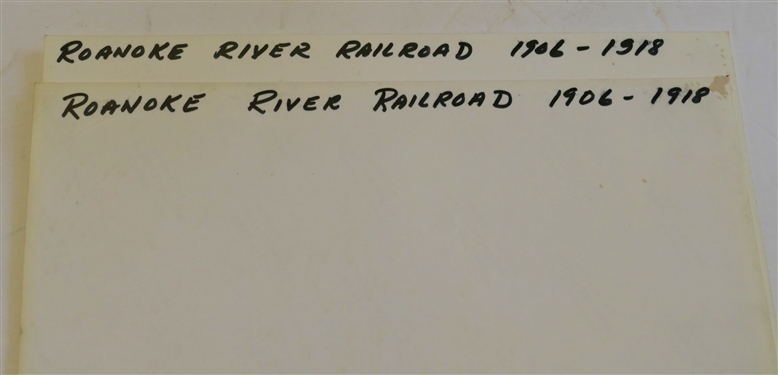 ROANOKE RIVER RAILROAD 1906-1918
ROANOKE RIVER RAILROAD 1906-1918